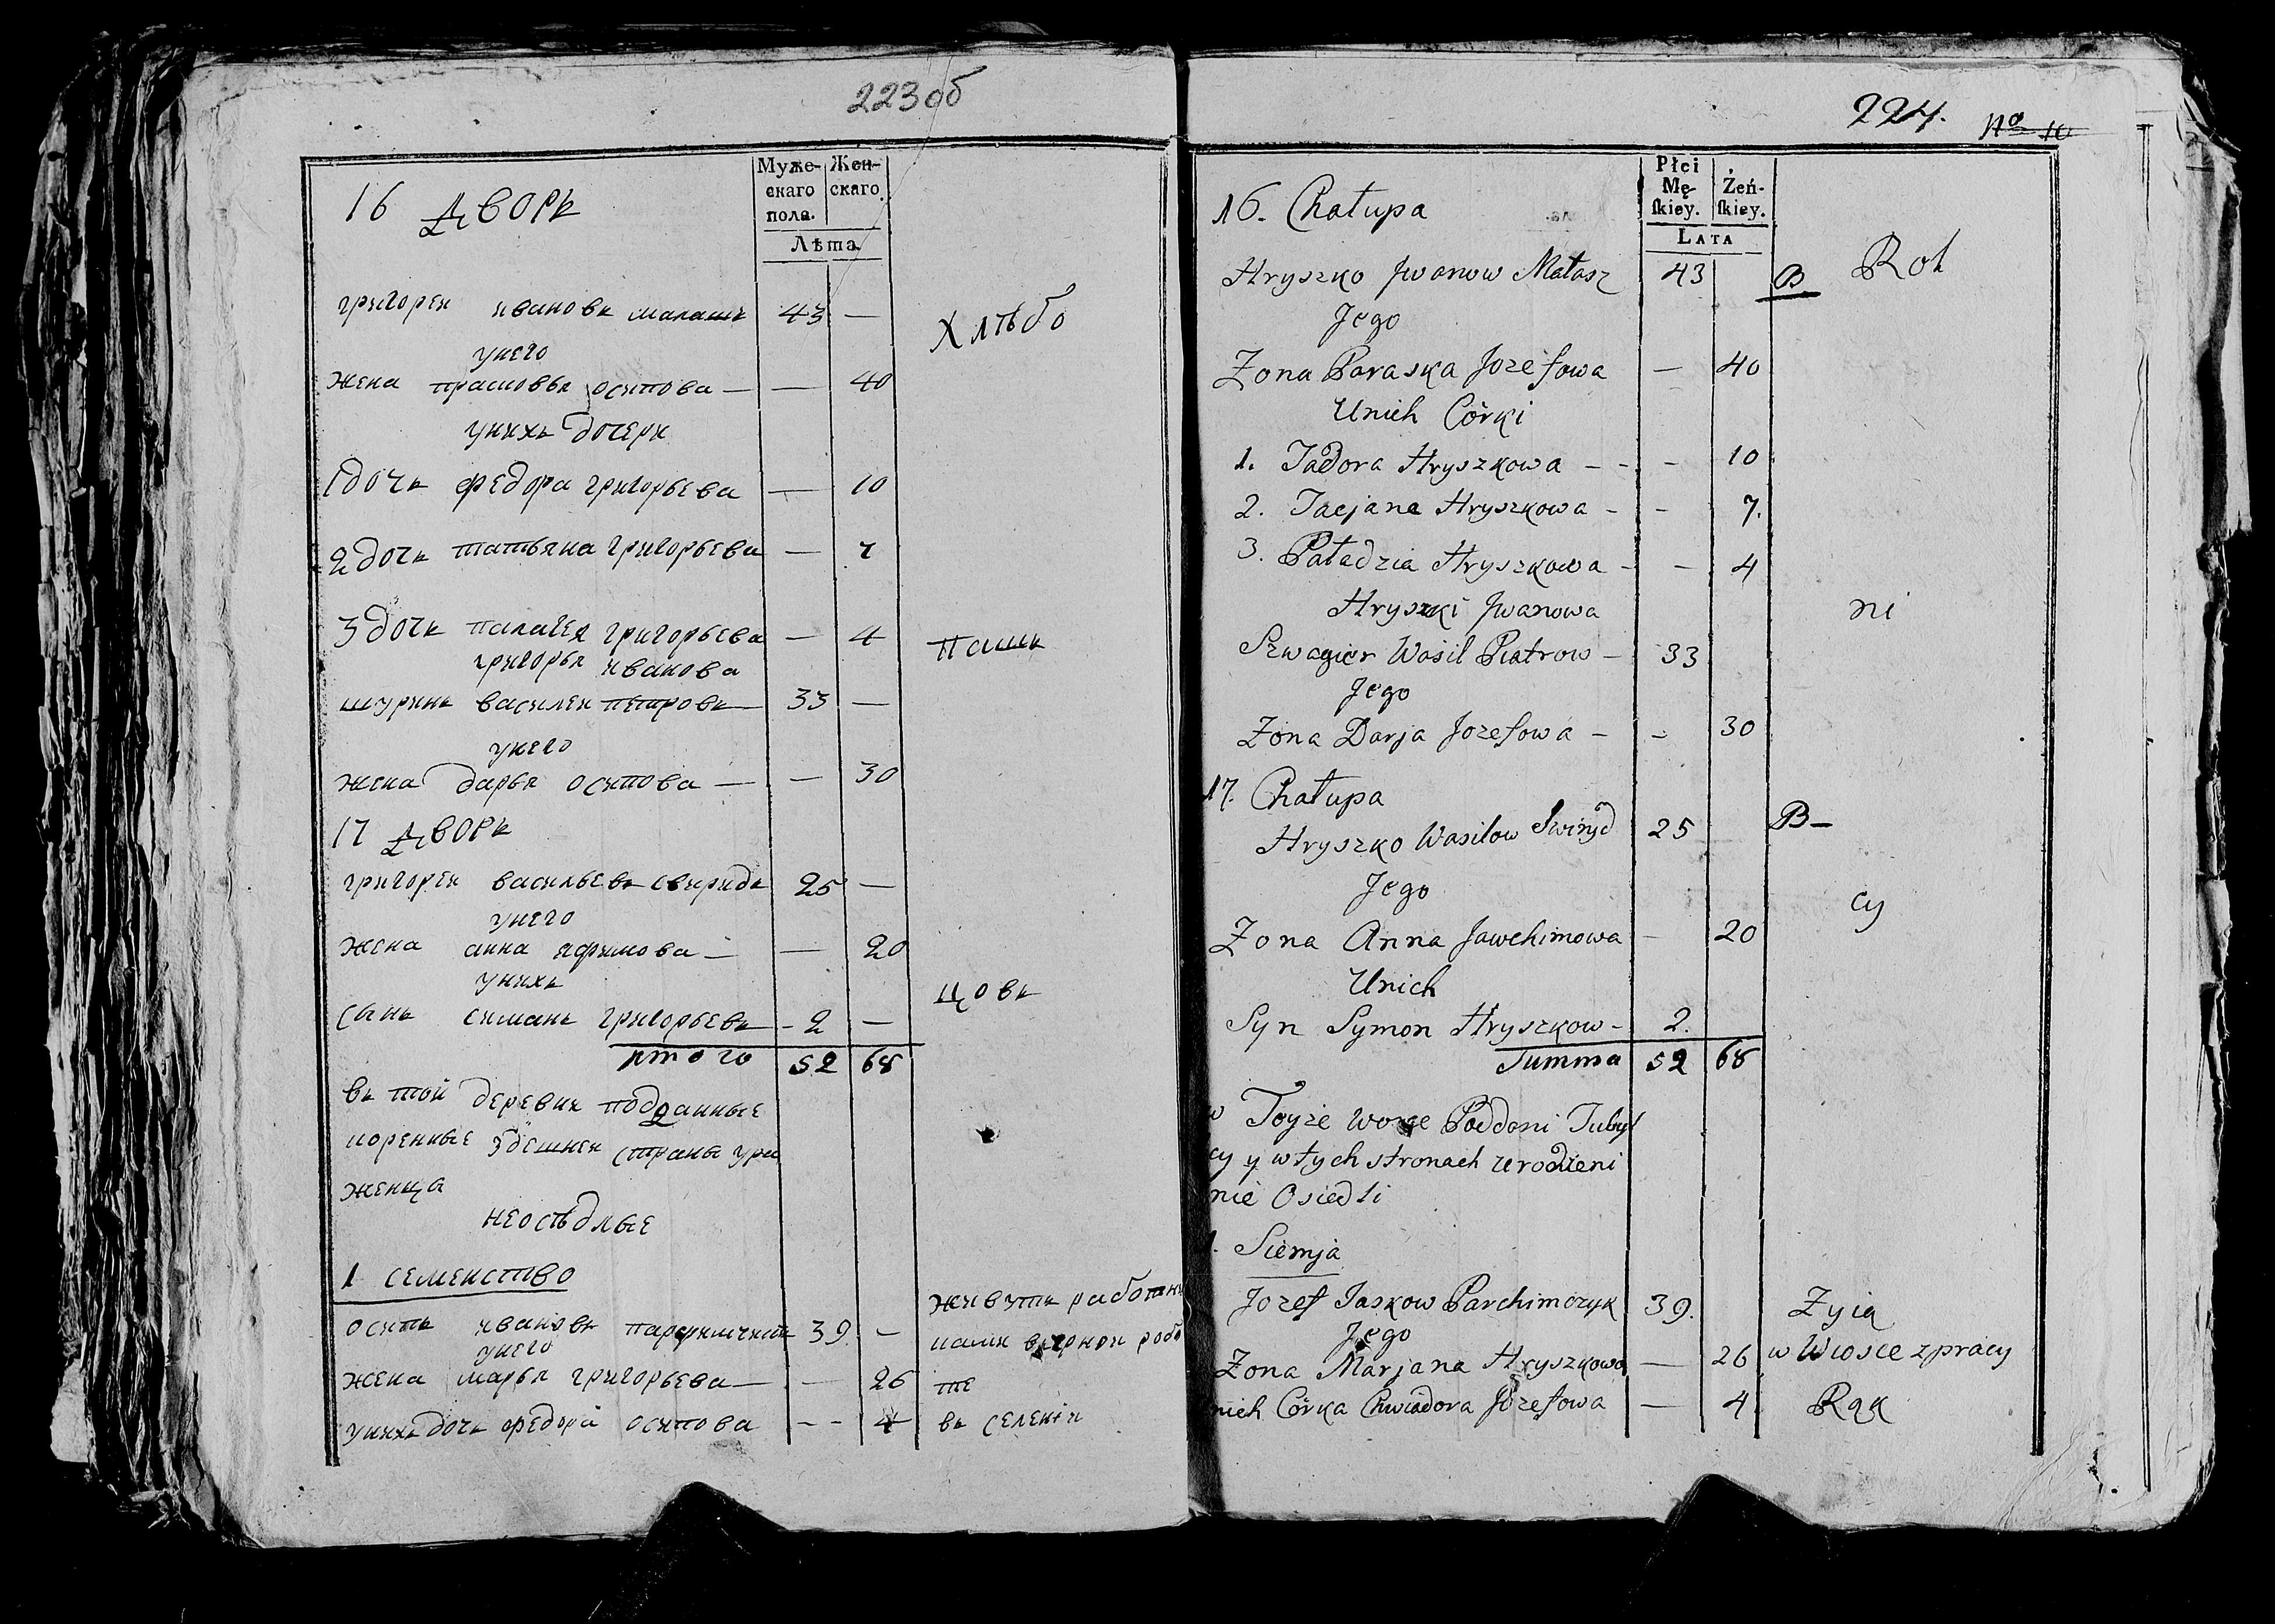 223об
Муже-
скаго
пола.
Жен-
скаго
Лѣта
16 дворъ
григореи ивановъ малашъ 43 —
унего
жена прасковья осипова — — 40
унихъ дочери
1 дочь федора григорьева — 10
2 дочь татьяна григорьева — 7
3 дочь палагея григорьева — 4
григорья иванова
шуринъ василеи петровъ — 33 —
унего
жена дарья осипова — — 30
17 дворъ
григореи васильевъ свиридъ 25 —
унего
жена анна яфимова — — 20
унихъ
сынъ симанъ григорьевъ — 2 —
итого 52 68
въ той деревни подданные
коренные здешнеи страны уро
женца
неосѣдлые
1 семеиство
осипъ ивановъ 39. —
унего
жена марья григорьева — — 26
унихъ дочь федора осипова — - 4
Хлѣбо
пашъ
цовъ
живутъ работни
ками въ робо
те
въ селени
224. No 10
Płci
Mę-
skiey.
Żeń-
skiey.
LATA
16. Chałupa
Hryszko Jwanow Małasz 43 B Rol
Jego
Zona Paraska Jozefowa — 40
Unich Córki
1. Jadora Hryszkowa - - - 10
2. Tacjana Hryszkowa - - 7.
3. Paładzia Hryszkowa - - 4
Hryszki Jwanowa ni
Szwagier Wasil Piatrow - 33
Jego
Zona Darja Jozefowa - - 30
17. Chałupa
Hryszko Wasilow Swiryd 25 B -
Jego cy
Zona Anna Jawchimowa - 20
Unich
Syn Symon Hryszkow - 2.
Summa 52 68
w Teyże Poddani Tubyl
cy y w tych stronach urodzeni
nie Osiedli
1. Siemja
Jozef Jaskow Parchimczyk 39. Zyią
Jego
Zona Marjana Hryszkowa — 26 w Wiosce z pracy
nich Córka Chwiadora Józefowa — 4 Rąk